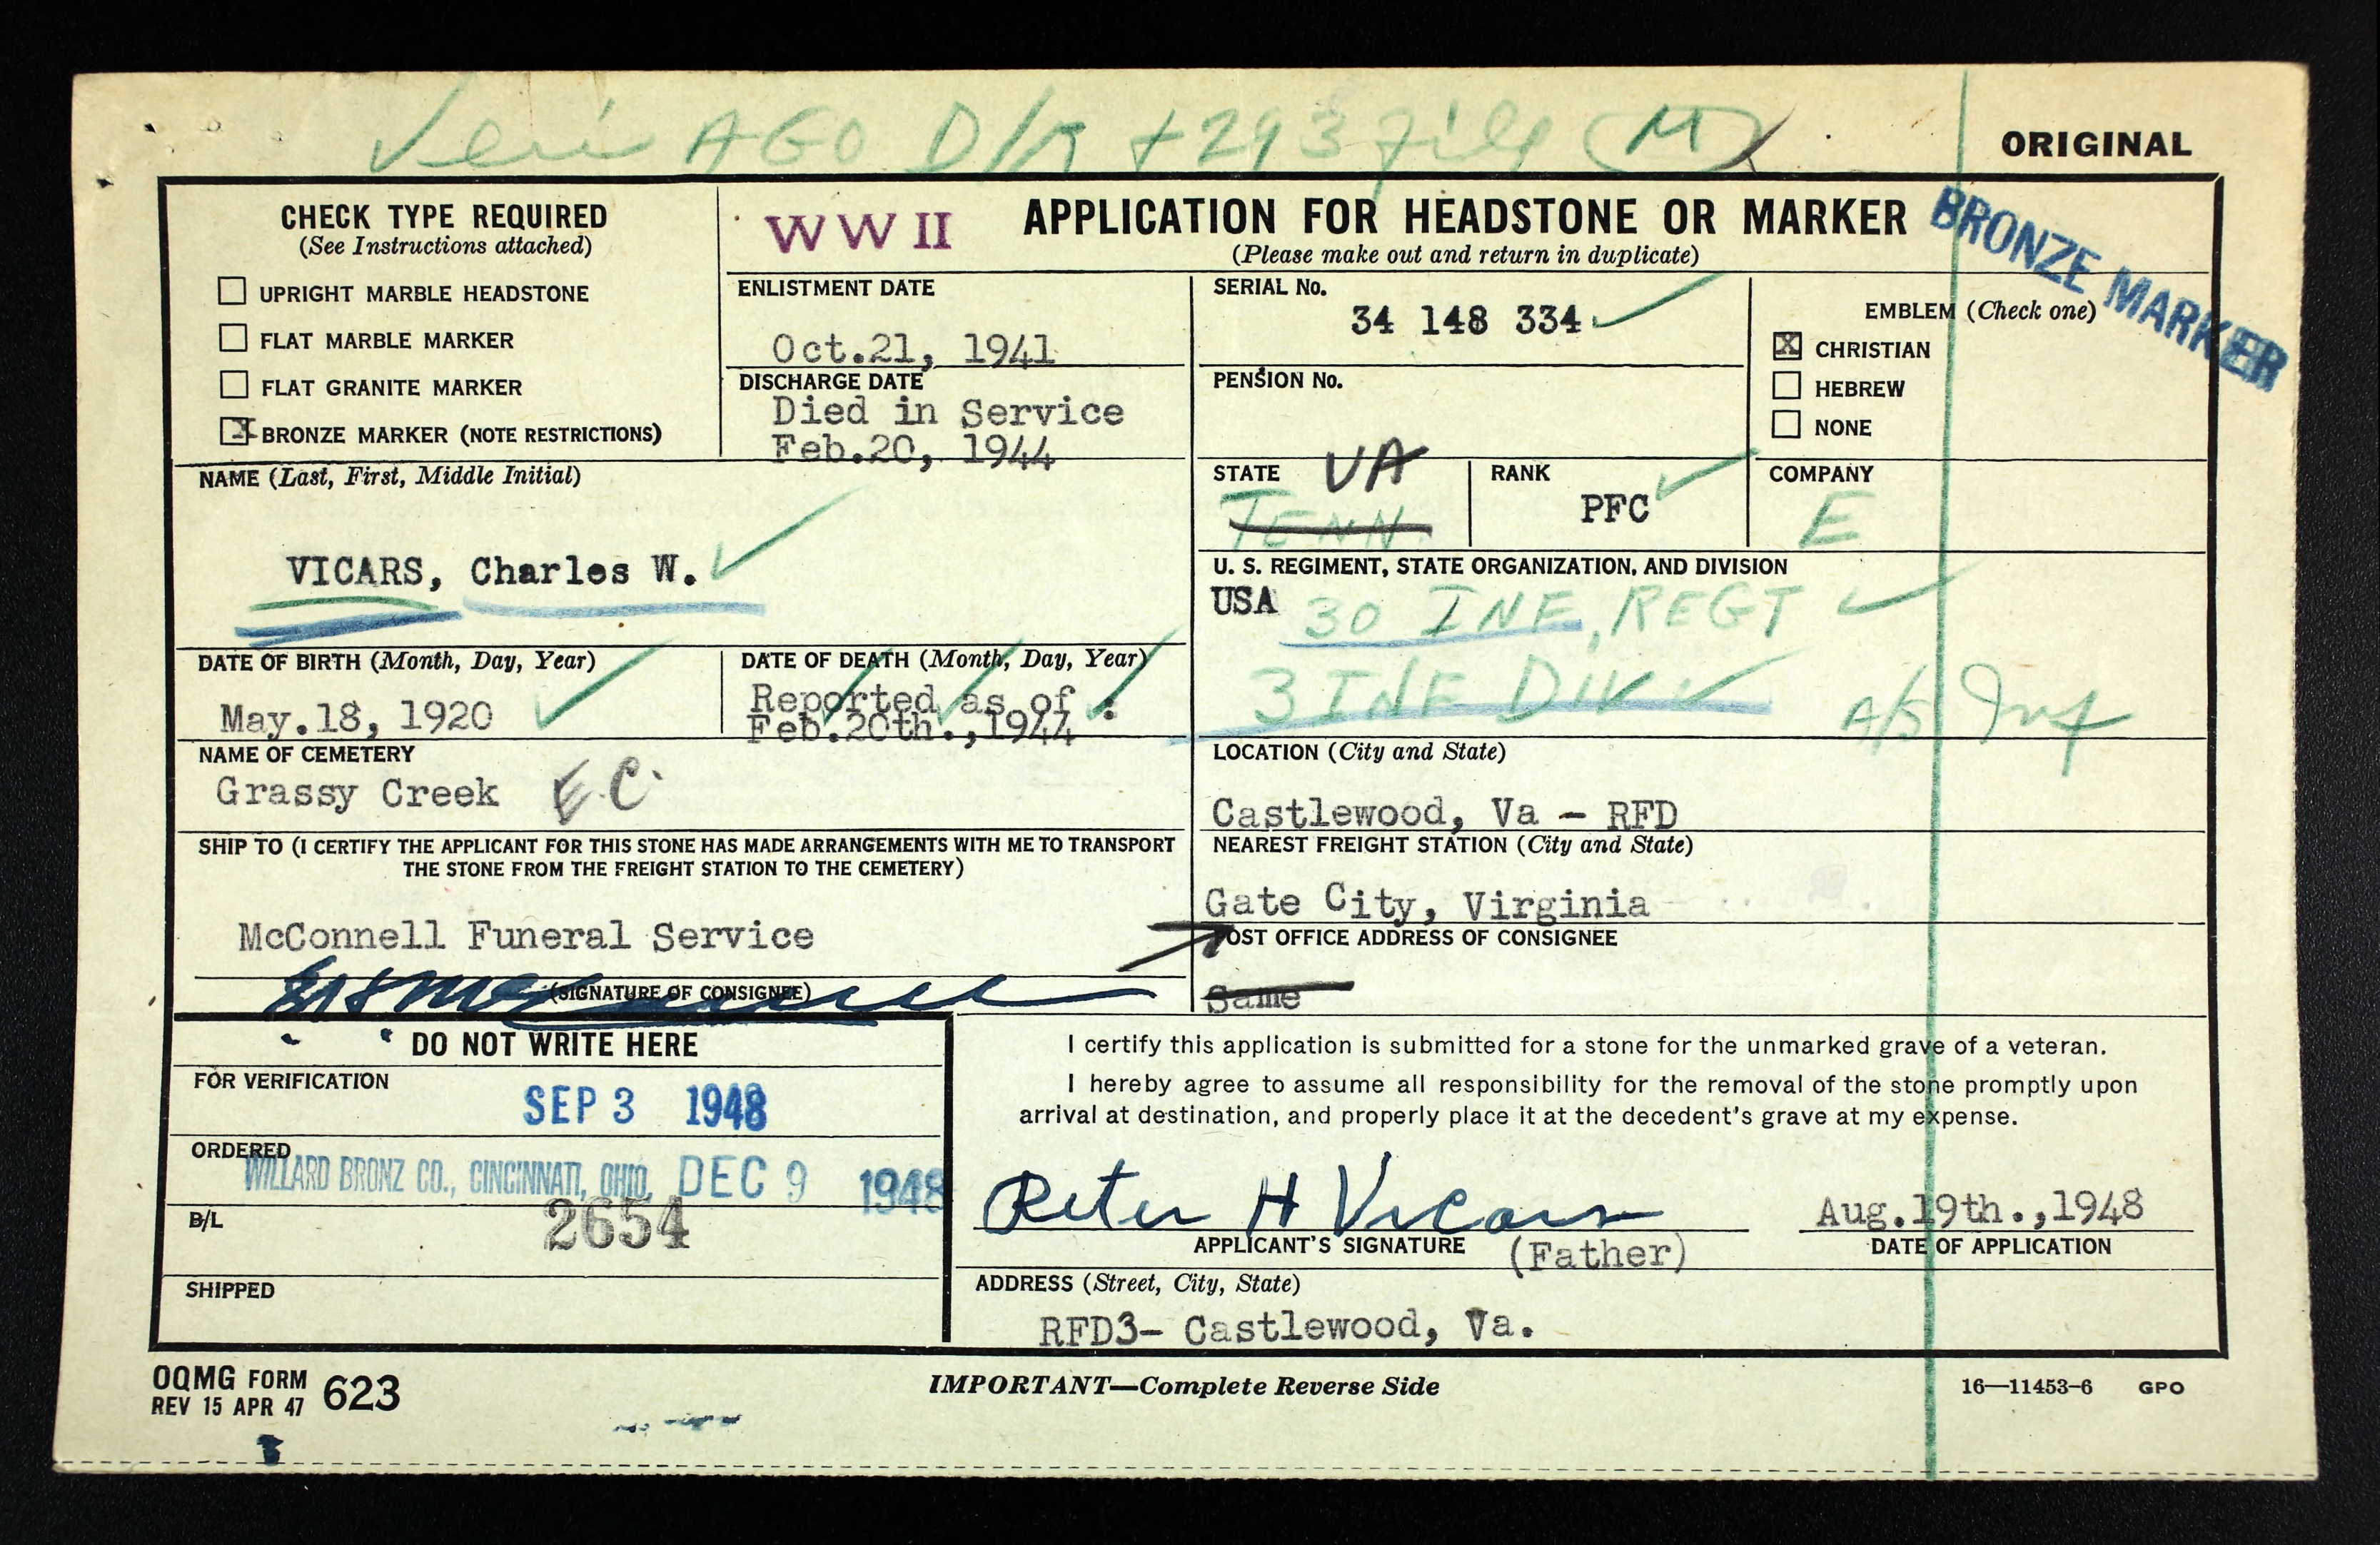 Veri AGO D/R + 293 file M
ORIGINAL
CHECK TYPE REQUIRED
(See Instructions attached)
UPRIGHT MARBLE HEADSTONE
FLAT MARBLE MARKER
FLAT GRANITE MARKER
X BRONZE MARKER (NOTE RESTRICTIONS)
WW II
APPLICATION FOR HEADSTONE OR MARKER
(Please make out and return in duplicate)
BRONZE MARKER
ENLISTMENT DATE
Oct.21, 1941
DISCHARGE DATE
Died in Service
Feb.20, 1944
SERIAL No.
34 148 334
PENSION No.
EMBLEM (Check one)
X CHRISTIAN
HEBREW
NONE
NAME (Last, First, Middle Initial)
VICARS, Charles W.
STATE VA
TENN.
RANK
PFC
COMPANY
E
U. S. REGIMENT, STATE ORGANIZATION, AND DIVISION
USA 30 INF, REGT
3 INF DIV
A/S Inf
DATE OF BIRTH (Month, Day, Year)
May.18, 1920
DATE OF DEATH (Month, Day, Year)
Reported as of :
Feb.20th.,1944
NAME OF CEMETERY
Grassy Creek E.C.
LOCATION (City and State)
Castlewood, Va - RFD
SHIP TO (I CERTIFY THE APPLICANT FOR THIS STONE HAS MADE ARRANGEMENTS WITH ME TO TRANSPORT
THE STONE FROM THE FREIGHT STATION TO THE CEMETERY)
McConnell Funeral Service
(SIGNATURE OF CONSIGNEE)
NEAREST FREIGHT STATION (City and State)
Gate City, Virginia
POST OFFICE ADDRESS OF CONSIGNEE
Same
DO NOT WRITE HERE
FOR VERIFICATION
SEP 3 1948
ORDERED
WILLARD BRONZ CO., CINCINNATI, OHIO, DEC 9 1948
B/L
2654
SHIPPED
I certify this application is submitted for a stone for the unmarked grave of a veteran.
I hereby agree to assume all responsibility for the removal of the stone promptly upon
arrival at destination, and properly place it at the decedent's grave at my expense.
Peter H Vicars
APPLICANT'S SIGNATURE (Father)
Aug.19th.,1948
DATE OF APPLICATION
ADDRESS (Street, City, State)
RFD3- Castlewood, Va.
OQMG FORM 623
REV 15 APR 47
IMPORTANT—Complete Reverse Side
16—11453-6 GPO